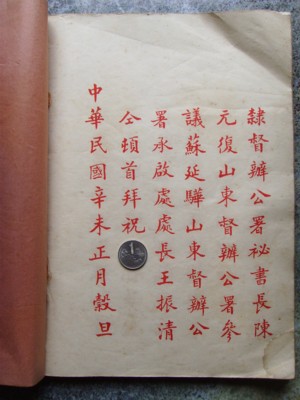 隸督辦公署祕書長陳
元復山東督辦公署參
議蘇延驊山東督辦公
署承啟處處長王振清
仝頓首拜祝
中華民國辛未正月穀旦